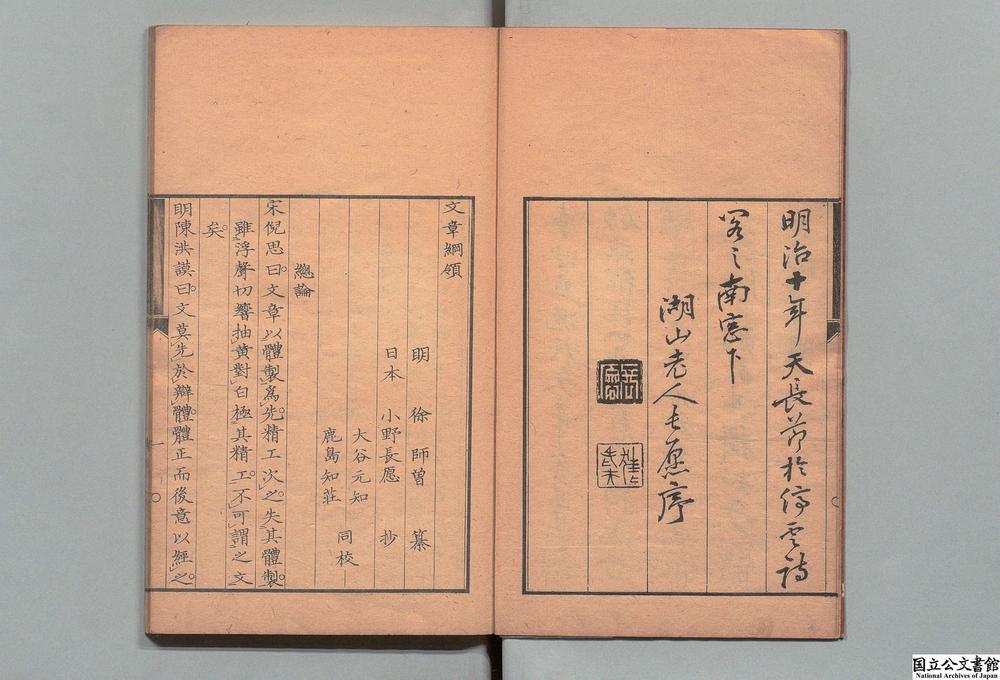 明治十年天長節於停雲詩
閣之南窓下
湖山老人長愿序
文章綱領
明 徐師曾 纂
日本 小野長愿 抄
大谷元知
鹿島知莊
同校
總論
宋倪思曰。文章以體製爲先。精工次之。失其體製。
雖浮聲切響抽黃對白極其精工。不可謂之文
矣。
明陳洪謨曰。文莫先於辯體。體正而後意以經之。
国立公文書館
National Archives of Japan